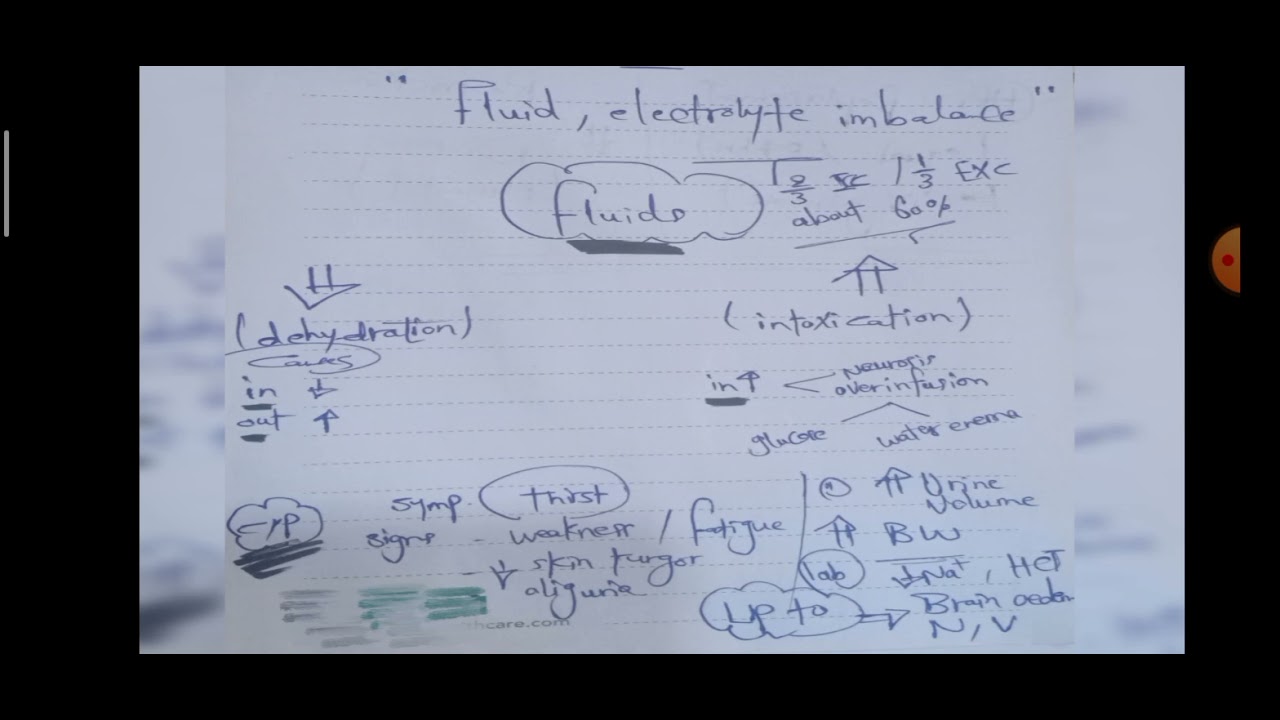 " fluid, electrolyte imbalance "
fluids
2/3 IC / 1/3 EXC
about 60%
⇓
(dehydration)
causes
in ↓
out ↑
⇑
(intoxication)
in ↑ < neurosis
overinfusion
glucose water enema
C/P
symp. thirst
signs - weakness / fatigue
- ↓ skin turgor
aligurie
⇑ Urine
Volume
⇑ BW
lab ↓Na+, HCT
Up to ⇒ Brain oedem
N/V
hcare.com